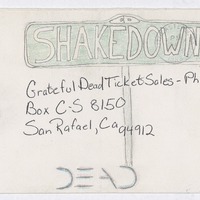 SHAKEDOWN
Grateful Dead Ticket Sales - Ph
Box C-S 8150
San Rafael, Ca 94912
DEAD